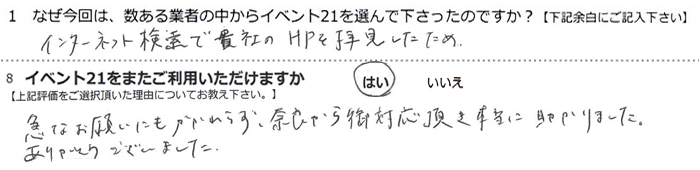 1 なぜ今回は、数ある業者の中からイベント21を選んで下さったのですか？【下記余白にご記入下さい】
インターネット検索で貴社のHPを拝見したため.
8 イベント21をまたご利用いただけますか はい いいえ
【上記評価をご選択頂いた理由についてお教え下さい。】
急なお願いにもかかわらず、奈良から御対応頂き本当に助かりました。
ありがとうございました.